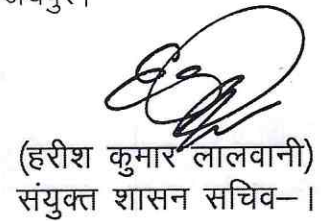 (हरीश कुमार लालवानी)
संयुक्त शासन सचिव–।